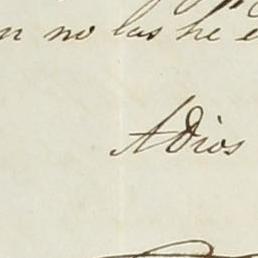 no las he
Adios